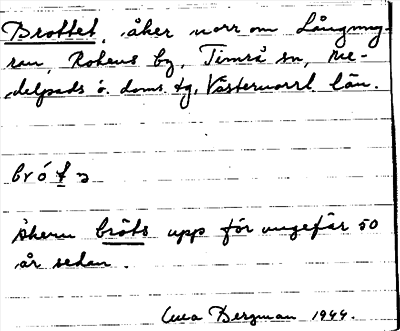 Brottet, åker norr om Långmy-
ran, Rokens by, Timrå sn, Me-
delpads ö. doms. tg, Västernorrl. län.
Åkern bröts upp för ungefär 50
år sedan.
Bergman 1944.